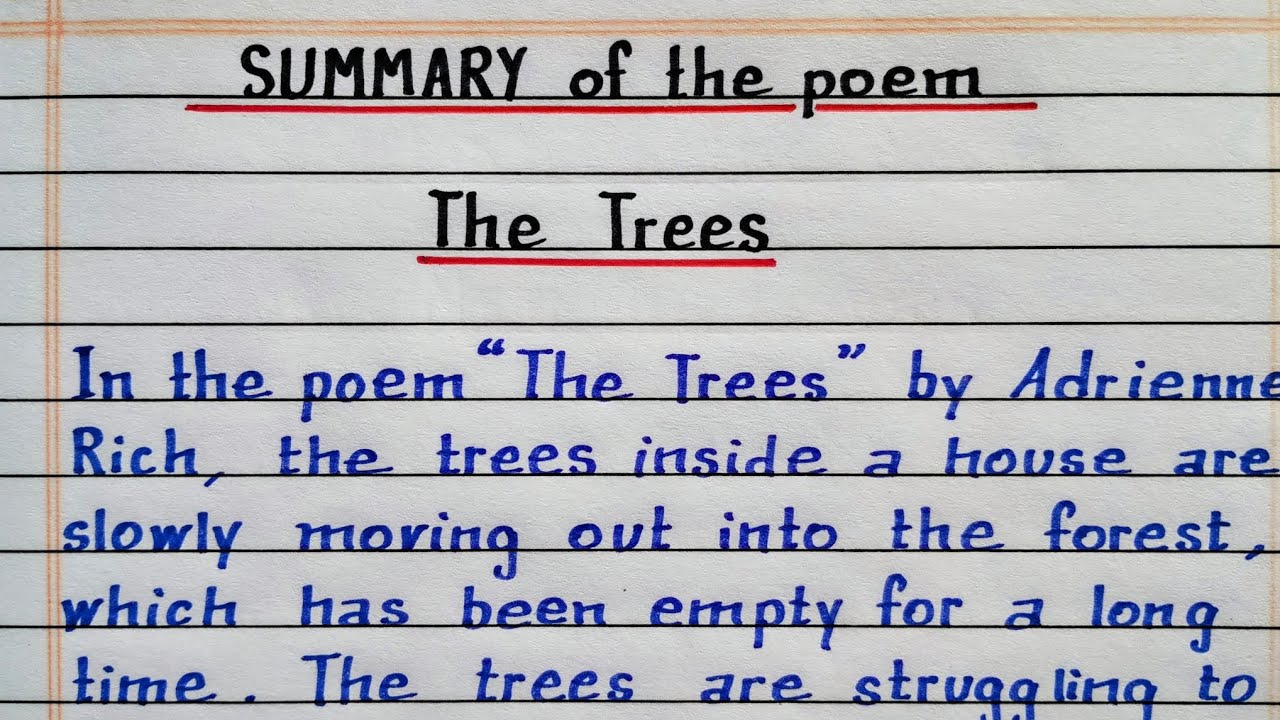 SUMMARY of the poem
The Trees
In the poem “The Trees” by Adrienne
Rich, the trees inside a house are
slowly moving out into the forest,
which has been empty for a long
time. The trees are struggling to